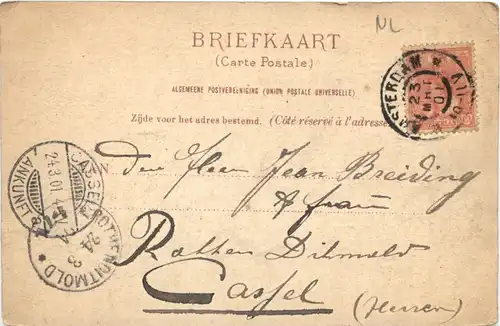 NL
BRIEFKAART
(Carte Postale)
ALGEMEENE POSTVEREENIGING (UNION POSTALE UNIVERSELLE)
Zijde voor het adres bestemd. (Côté réservé à l'adresse
AMSTERDAM
23 MRT 01
Den Heer Jean Breiding
& frau
CASSEL-ROTHENDITMOLD
24 3
ANKUNFT
24.3.01
Rothen Ditmold
Cassel
(Hessen)